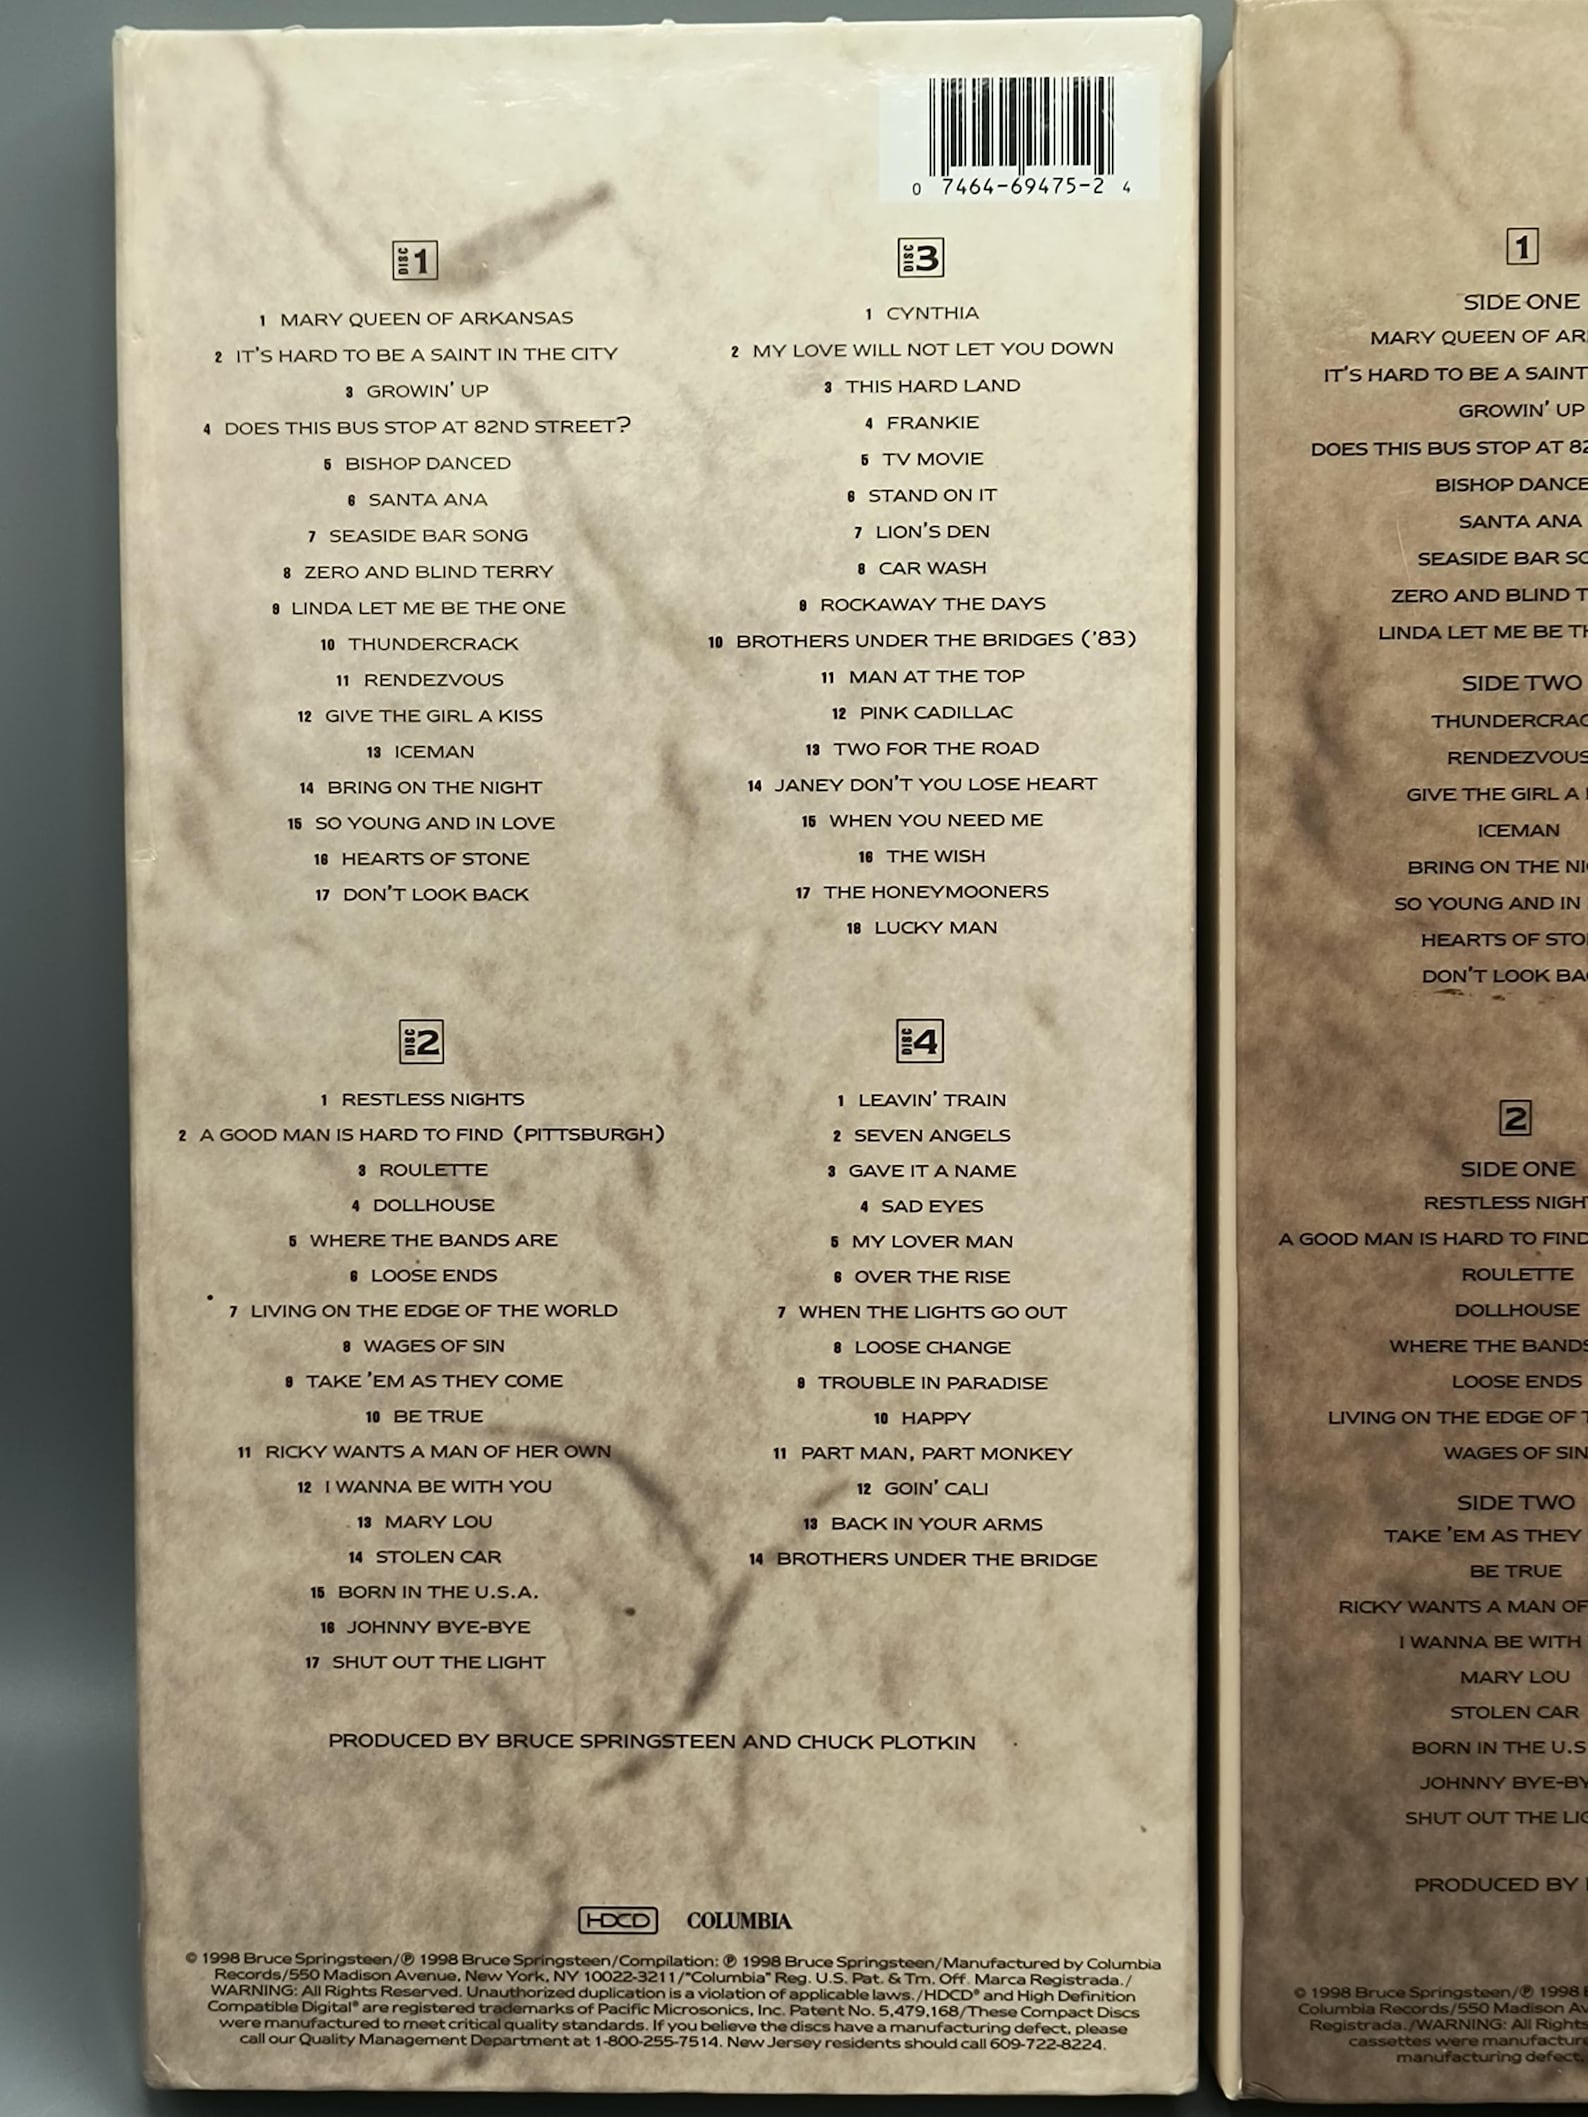 0 7464-69475-2 4
DISC 1
1 MARY QUEEN OF ARKANSAS
2 IT'S HARD TO BE A SAINT IN THE CITY
3 GROWIN' UP
4 DOES THIS BUS STOP AT 82ND STREET?
5 BISHOP DANCED
6 SANTA ANA
7 SEASIDE BAR SONG
8 ZERO AND BLIND TERRY
9 LINDA LET ME BE THE ONE
10 THUNDERCRACK
11 RENDEZVOUS
12 GIVE THE GIRL A KISS
13 ICEMAN
14 BRING ON THE NIGHT
15 SO YOUNG AND IN LOVE
16 HEARTS OF STONE
17 DON'T LOOK BACK
DISC 2
1 RESTLESS NIGHTS
2 A GOOD MAN IS HARD TO FIND (PITTSBURGH)
3 ROULETTE
4 DOLLHOUSE
5 WHERE THE BANDS ARE
6 LOOSE ENDS
7 LIVING ON THE EDGE OF THE WORLD
8 WAGES OF SIN
9 TAKE 'EM AS THEY COME
10 BE TRUE
11 RICKY WANTS A MAN OF HER OWN
12 I WANNA BE WITH YOU
13 MARY LOU
14 STOLEN CAR
15 BORN IN THE U.S.A.
16 JOHNNY BYE-BYE
17 SHUT OUT THE LIGHT
DISC 3
1 CYNTHIA
2 MY LOVE WILL NOT LET YOU DOWN
3 THIS HARD LAND
4 FRANKIE
5 TV MOVIE
6 STAND ON IT
7 LION'S DEN
8 CAR WASH
9 ROCKAWAY THE DAYS
10 BROTHERS UNDER THE BRIDGES ('83)
11 MAN AT THE TOP
12 PINK CADILLAC
13 TWO FOR THE ROAD
14 JANEY DON'T YOU LOSE HEART
15 WHEN YOU NEED ME
16 THE WISH
17 THE HONEYMOONERS
18 LUCKY MAN
DISC 4
1 LEAVIN' TRAIN
2 SEVEN ANGELS
3 GAVE IT A NAME
4 SAD EYES
5 MY LOVER MAN
6 OVER THE RISE
7 WHEN THE LIGHTS GO OUT
8 LOOSE CHANGE
9 TROUBLE IN PARADISE
10 HAPPY
11 PART MAN, PART MONKEY
12 GOIN' CALI
13 BACK IN YOUR ARMS
14 BROTHERS UNDER THE BRIDGE
PRODUCED BY BRUCE SPRINGSTEEN AND CHUCK PLOTKIN
HDCD COLUMBIA
© 1998 Bruce Springsteen/℗ 1998 Bruce Springsteen/Compilation: ℗ 1998 Bruce Springsteen/Manufactured by Columbia
Records/550 Madison Avenue, New York, NY 10022-3211/"Columbia" Reg. U.S. Pat. & Tm. Off. Marca Registrada./
WARNING: All Rights Reserved. Unauthorized duplication is a violation of applicable laws./HDCD® and High Definition
Compatible Digital® are registered trademarks of Pacific Microsonics, Inc. Patent No. 5,479,168/These Compact Discs
were manufactured to meet critical quality standards. If you believe the discs have a manufacturing defect, please
call our Quality Management Department at 1-800-255-7514. New Jersey residents should call 609-722-8224.
1
SIDE ONE
MARY QUEEN OF AR
IT'S HARD TO BE A SAINT
GROWIN' UP
DOES THIS BUS STOP AT 82
BISHOP DANCE
SANTA ANA
SEASIDE BAR SO
ZERO AND BLIND T
LINDA LET ME BE TH
SIDE TWO
THUNDERCRAC
RENDEZVOUS
GIVE THE GIRL A
ICEMAN
BRING ON THE NI
SO YOUNG AND IN
HEARTS OF STO
DON'T LOOK BA
2
SIDE ONE
RESTLESS NIGH
A GOOD MAN IS HARD TO FIND
ROULETTE
DOLLHOUSE
WHERE THE BANDS
LOOSE ENDS
LIVING ON THE EDGE OF
WAGES OF SIN
SIDE TWO
TAKE 'EM AS THEY
BE TRUE
RICKY WANTS A MAN OF
I WANNA BE WITH
MARY LOU
STOLEN CAR
BORN IN THE U.S
JOHNNY BYE-BY
SHUT OUT THE LIG
PRODUCED BY
© 1998 Bruce Springsteen/℗ 1998
Columbia Records/550 Madison Av
Registrada./WARNING: All Rights
cassettes were manufacture
manufacturing defect,